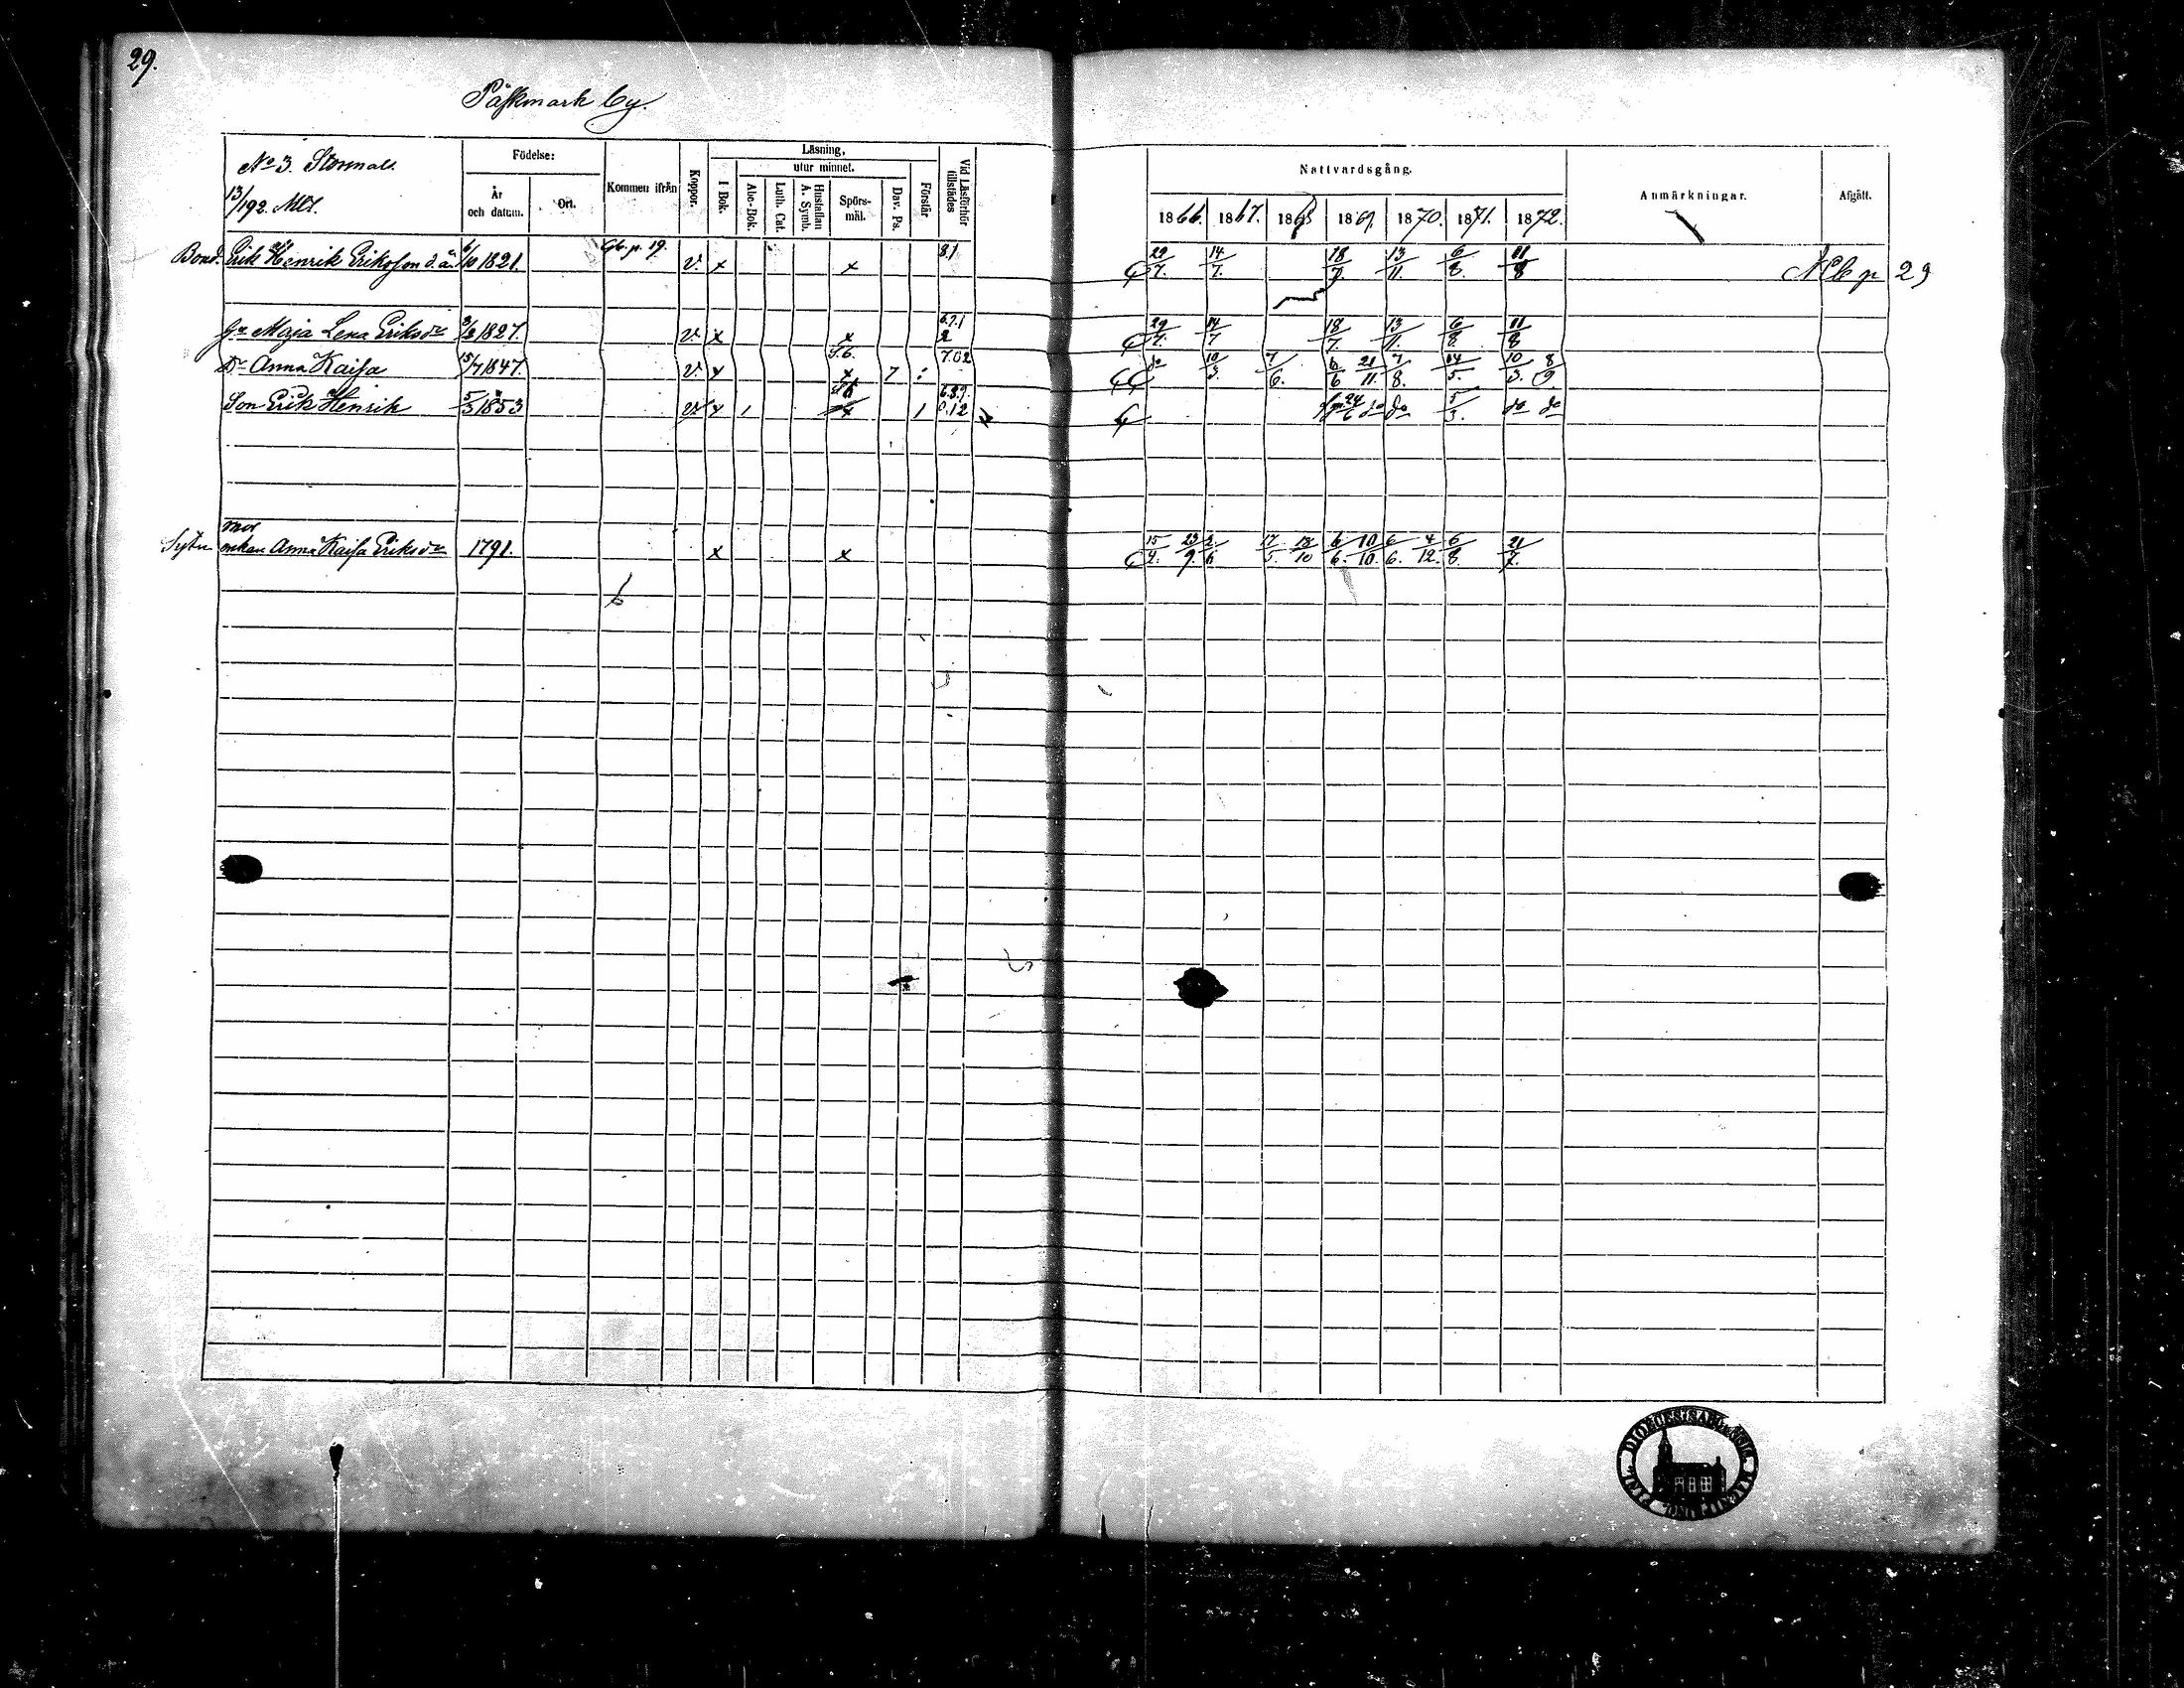 29.
Påskmark by.
No 3. Stormalt.
13/192. Mtl.
Födelse:
År och datum.
Ort.
Kommen ifrån
Koppor.
Läsning,
I Bok.
utur minnet.
Abc-Bok.
Luth. Cat.
Hustaflan A. Symb.
Spörs-mål.
Dav. Ps.
Förstår
Vid Läsförhör tillstädes
Nattvardsgång.
1866. 1867. 1868 1869. 1870. 1871. 1872.
Anmärkningar.
Afgått.
Bond. Erik Henrik Eriksson d. ä. 6/10 1821. Gb. p. 19. v. x x 8.1 29/7. 14/7. 18/7. 13/11. 6/8. 11/8 N Cb p 29
Maja Lena Eriksdr 2/2 1827. v. x x 6.7.1 2 29/7. 14/7 18/7. 13/11. 6/8. 11/8
Dr Anna Kaisa 15/7 1847. v. x x 7 : 7.02 do 10/3. 7/6. 6/6 21/11. 7/8. 14/5. 10/3. 8/9.
Son Erik Henrik 5/3 1853 v. x 1 x 1 6.8.9. 0.12 24/6 do do 5/3. do do
mor
enkan Anna Kaisa Eriksdr 1791. x x 15/2. 23/9. 2/6 17/5. 18/10 6/6. 10/10. 6/6. 4/12. 6/8. 21/7.